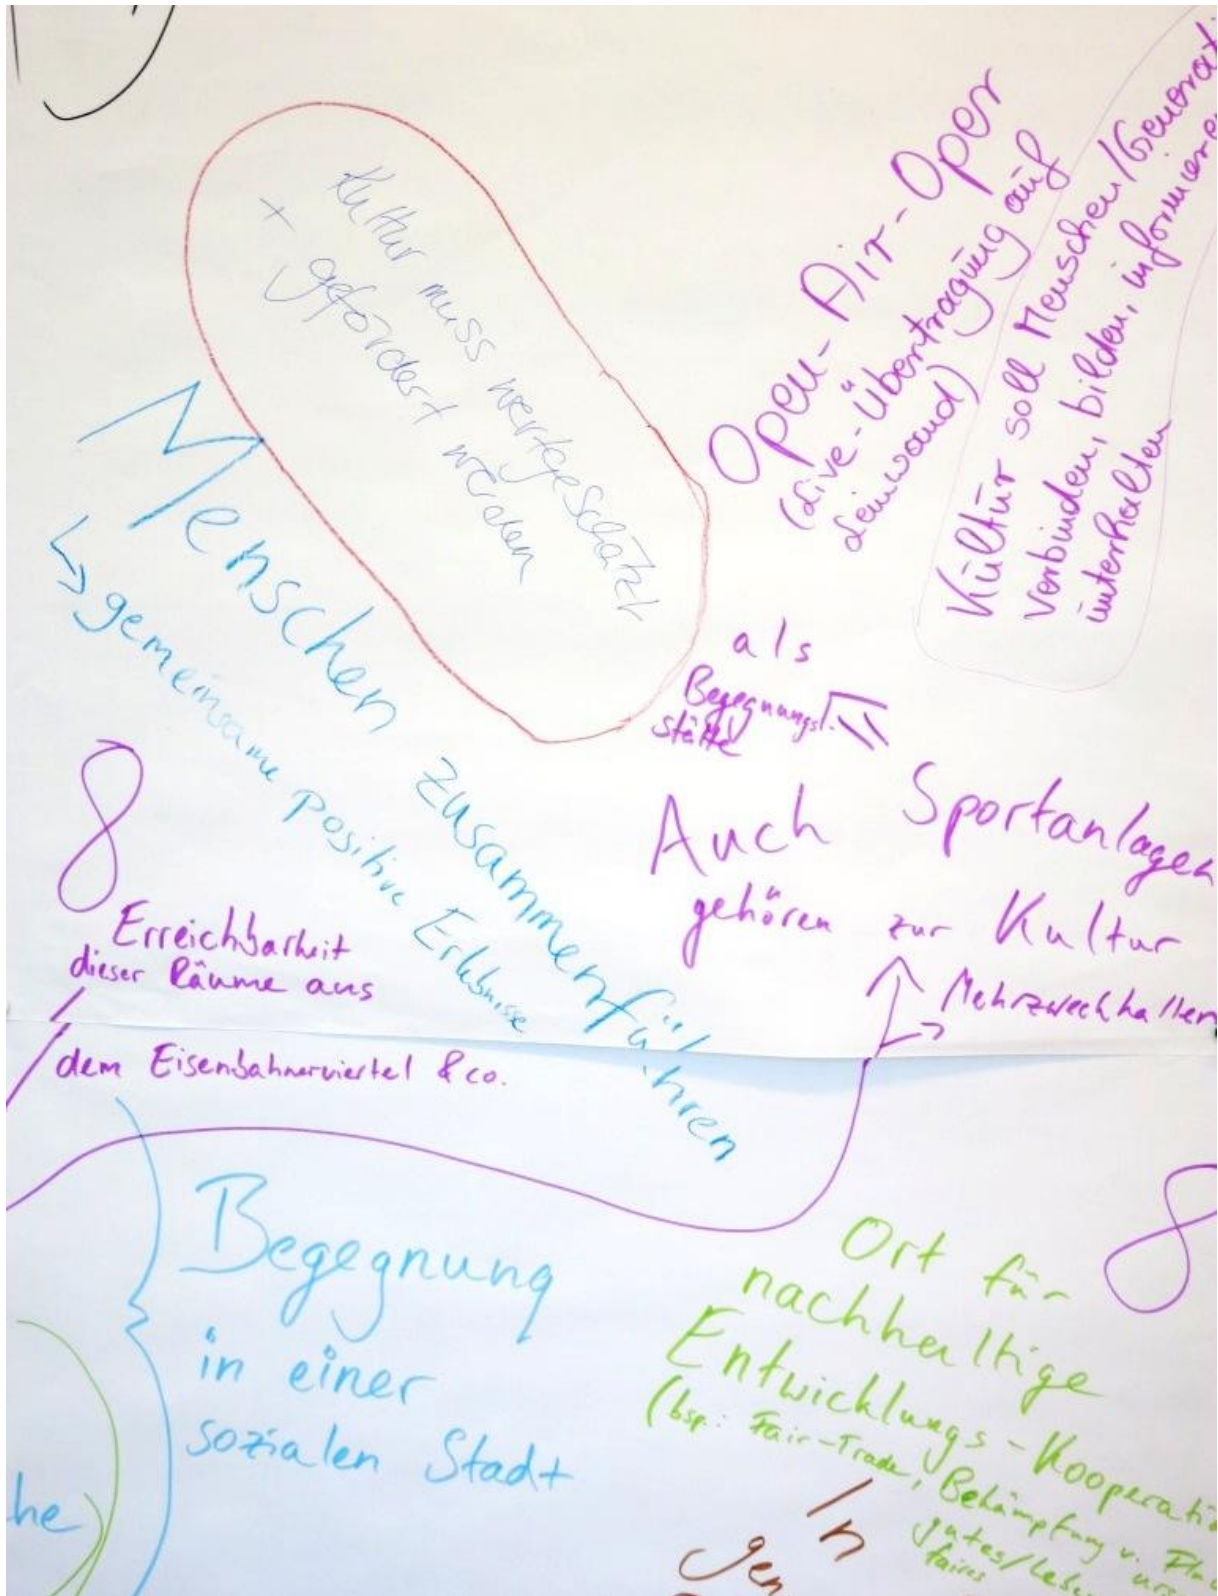 Kultur muss wertgeschätzt
+ gefördert werden
Open-Air-Oper
(Live-Übertragung auf
Leinwand)
Kultur soll Menschen/Generati
verbinden, bilden, informieren
unterhalten
Menschen zusammenführen
↳ gemeinsame positive Erlebnisse
als
Begegnungs-
stätte
Auch Sportanlagen
gehören zur Kultur
→ Mehrzweckhallen
8
Erreichbarkeit
dieser Räume aus
dem Eisenbahnerviertel & co.
Begegnung
in einer
sozialen Stadt
8
Ort für
nachhaltige
Entwicklungs-Kooperatio
(bsp.: Fair-Trade, Bekämpfung v.
gutes/
faires
he
In
gen